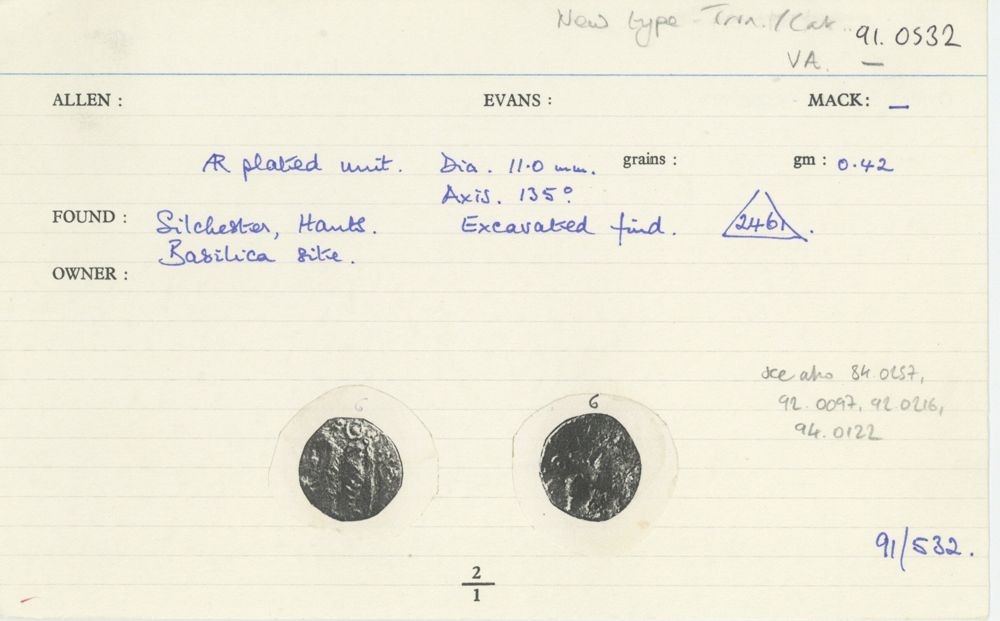 New type - Trin. / Cat. 91.0532
VA. —
ALLEN : EVANS : MACK: —
AR plated unit. Dia. 11.0 mm. grains : gm : 0.42
Axis. 135°
FOUND : Silchester, Hants. Excavated find. 2461.
Basilica site.
OWNER :
see also 84.0257,
92.0097, 92.0216,
94.0122
6 6
91/532.
2
1